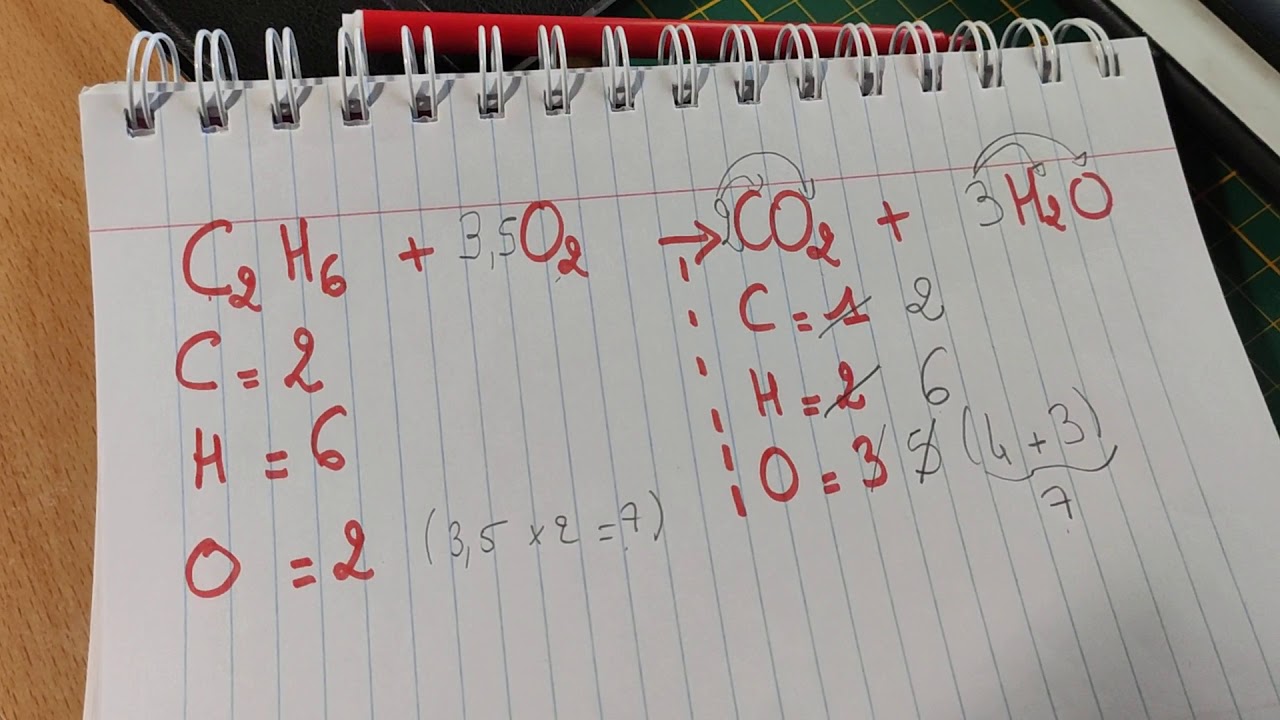 C₂H₆ + 3,5O₂ → 2CO₂ + 3H₂O
C = 2
H = 6
O = 2 (3,5 × 2 = 7)
C = 1 2
H = 2 6
O = 3 5 (4 + 3)
7